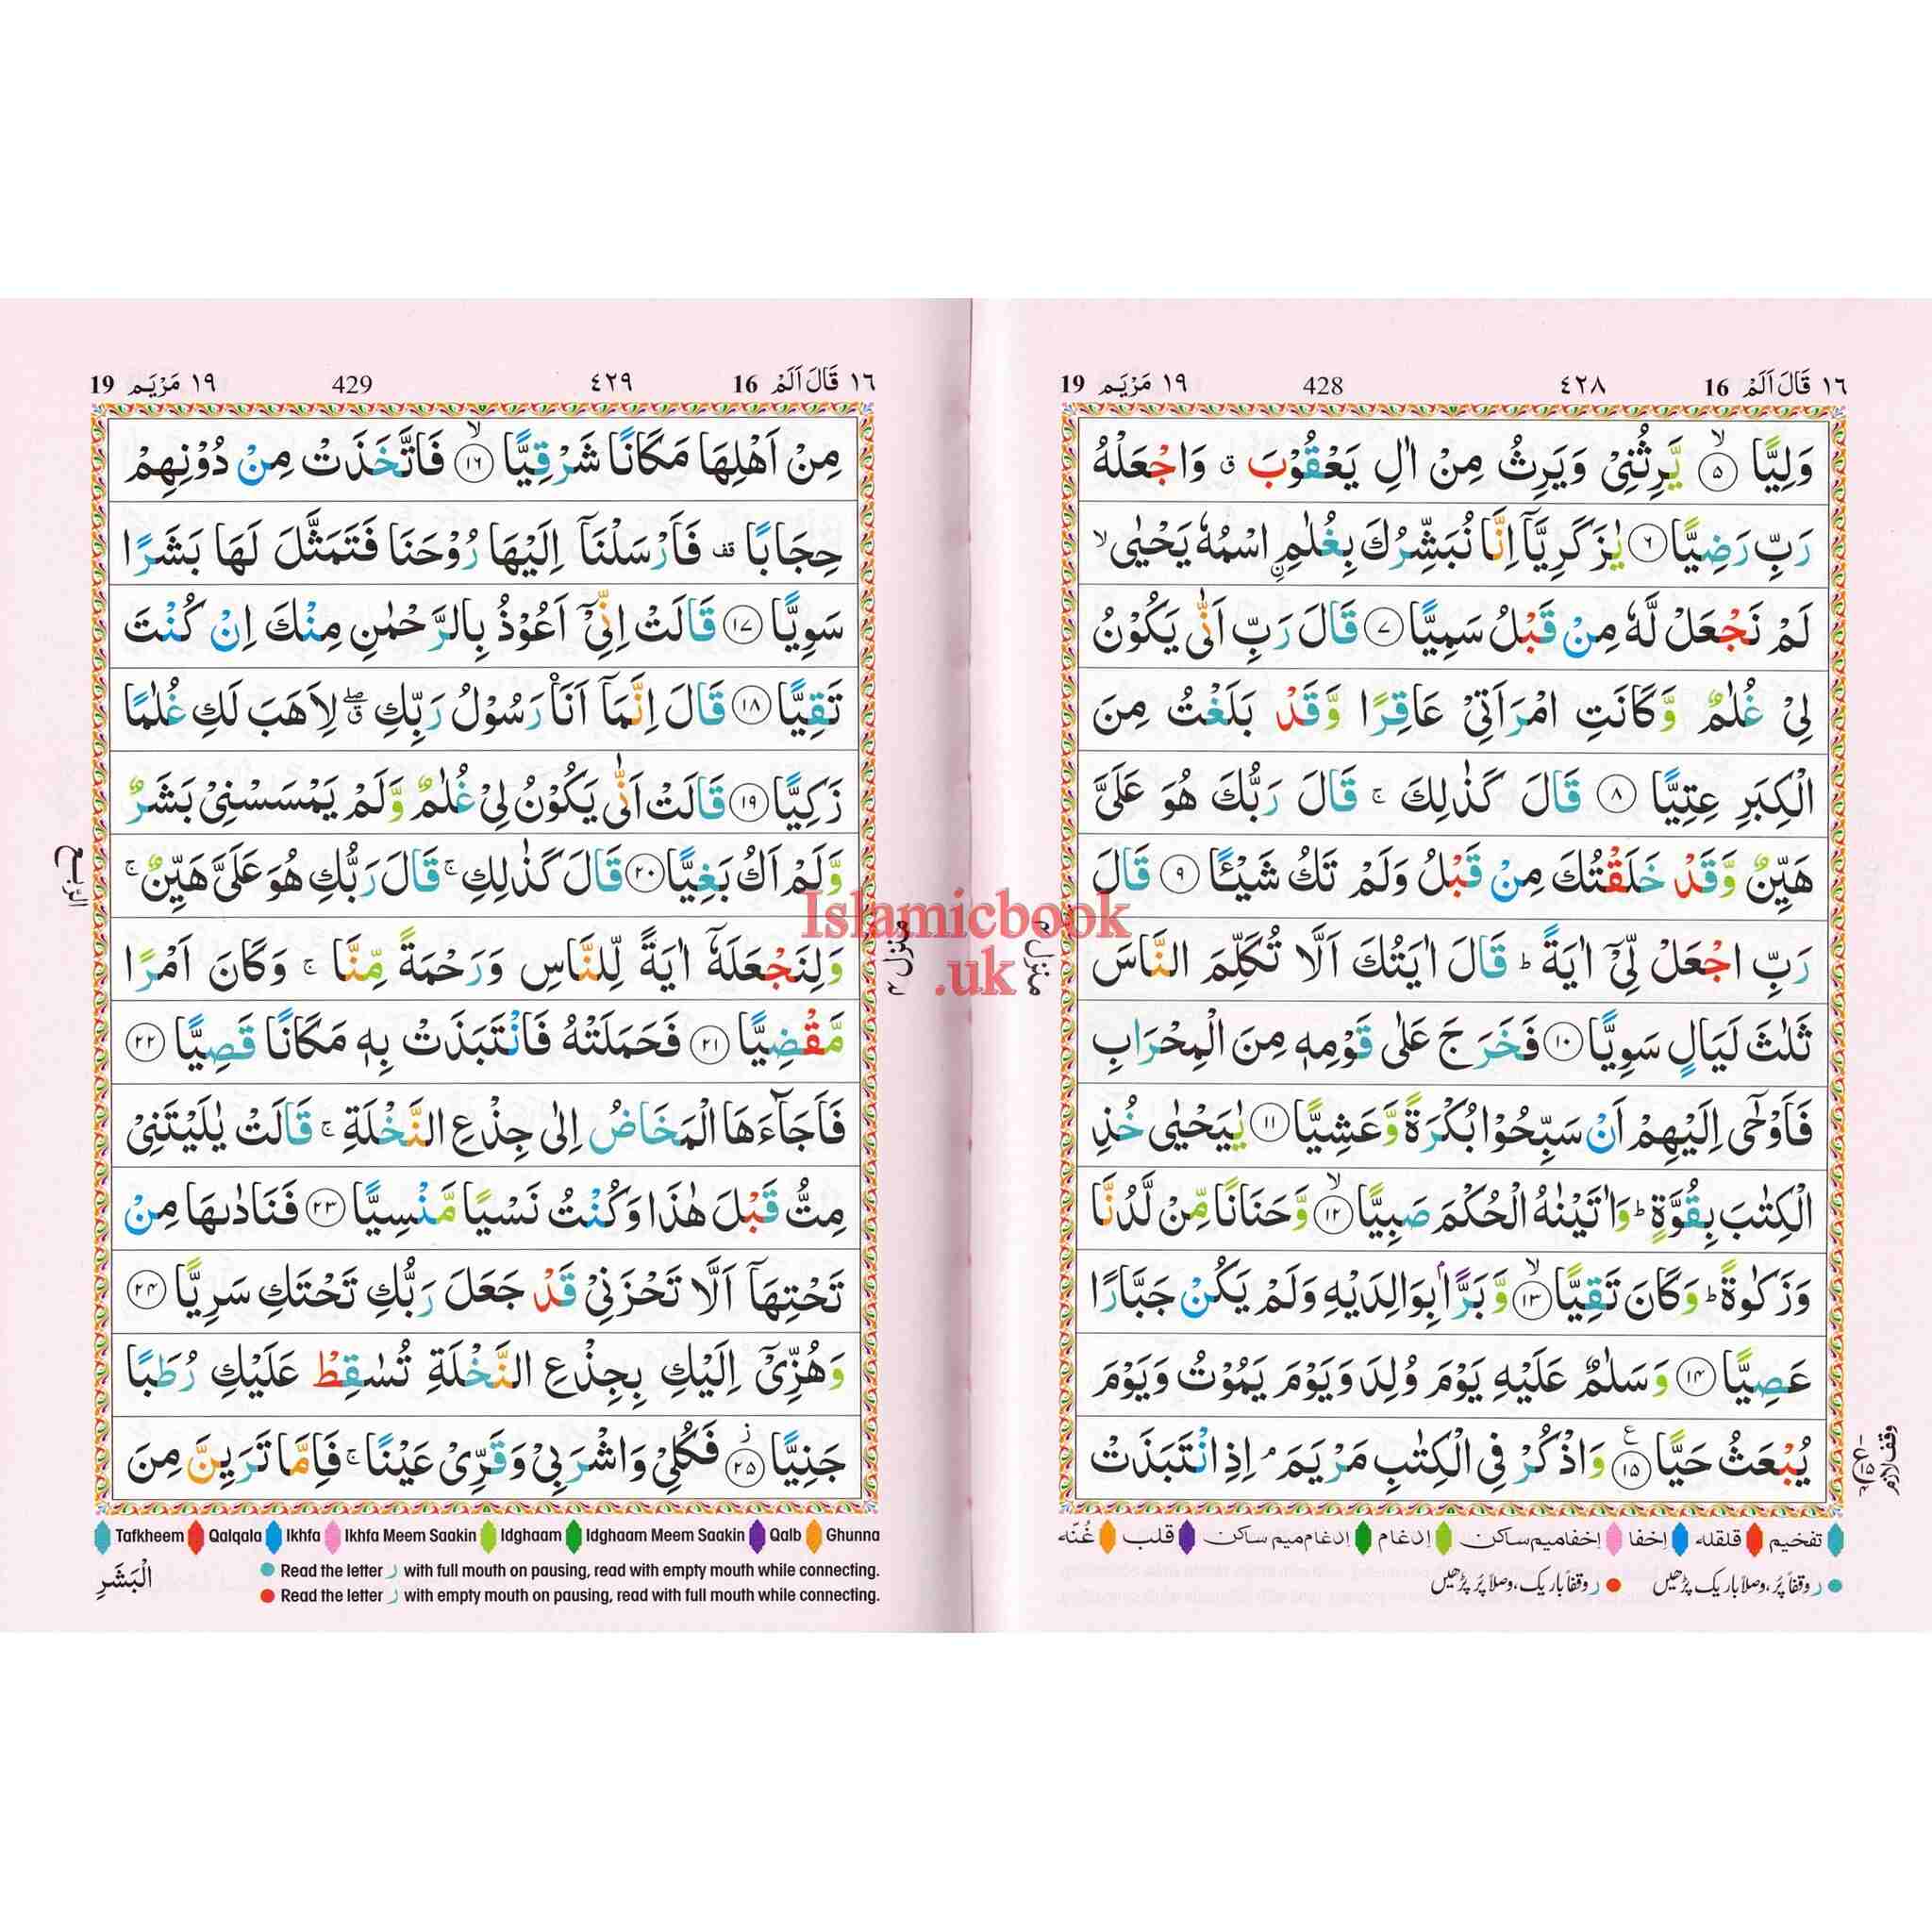 ١٦ قَالَ اَلَمْ 16 ٤٢٨ 428 ١٩ مَرْيَم 19
وَلِيًّا ۙ﴿۵﴾ يَّرِثُنِىْ وَيَرِثُ مِنْ اٰلِ يَعْقُوْبَ ۖ ق وَاجْعَلْهُ
رَبِّ رَضِيًّا ﴿۶﴾ يٰزَكَرِيَّاۤ اِنَّا نُبَشِّرُكَ بِغُلٰمِ ۨاسْمُهٗ يَحْيٰى ۙ
لَمْ نَجْعَلْ لَّهٗ مِنْ قَبْلُ سَمِيًّا ﴿۷﴾ قَالَ رَبِّ اَنّٰى يَكُوْنُ
لِىْ غُلٰمٌ وَّكَانَتِ امْرَاَتِىْ عَاقِرًا وَّقَدْ بَلَغْتُ مِنَ
الْكِبَرِ عِتِيًّا ﴿۸﴾ قَالَ كَذٰلِكَ ۚ قَالَ رَبُّكَ هُوَ عَلَىَّ
هَيِّنٌ وَّقَدْ خَلَقْتُكَ مِنْ قَبْلُ وَلَمْ تَكُ شَيْـًٔا ﴿۹﴾ قَالَ
رَبِّ اجْعَلْ لِّىْۤ اٰيَةً ؕ قَالَ اٰيَتُكَ اَلَّا تُكَلِّمَ النَّاسَ
ثَلٰثَ لَيَالٍ سَوِيًّا ﴿۱۰﴾ فَخَرَجَ عَلٰى قَوْمِهٖ مِنَ الْمِحْرَابِ
فَاَوْحٰٓى اِلَيْهِمْ اَنْ سَبِّحُوْا بُكْرَةً وَّعَشِيًّا ﴿۱۱﴾ يٰيَحْيٰى خُذِ
الْكِتٰبَ بِقُوَّةٍ ؕ وَاٰتَيْنٰهُ الْحُكْمَ صَبِيًّا ۙ﴿۱۲﴾ وَّحَنَانًا مِّنْ لَّدُنَّا
وَزَكٰوةً ؕ وَكَانَ تَقِيًّا ۙ﴿۱۳﴾ وَّبَرًّۢا بِوَالِدَيْهِ وَلَمْ يَكُنْ جَبَّارًا
عَصِيًّا ﴿۱۴﴾ وَسَلٰمٌ عَلَيْهِ يَوْمَ وُلِدَ وَيَوْمَ يَمُوْتُ وَيَوْمَ
يُبْعَثُ حَيًّا ﴿۱۵﴾ ع وَاذْكُرْ فِى الْكِتٰبِ مَرْيَمَ ۘ اِذِ انْتَبَذَتْ
وقف لازم
منزل ٤
تفخيم قلقله اِخفا اِخفامیم ساکن اِدغام اِدغام میم ساکن قلب غُنّه
ر وقفاً پُر، وصلاً باریک پڑھیں ر وقفاً باریک، وصلاً پُر پڑھیں
١٦ قَالَ اَلَمْ 16 ٤٢٩ 429 ١٩ مَرْيَم 19
مِنْ اَهْلِهَا مَكَانًا شَرْقِيًّا ۙ﴿۱۶﴾ فَاتَّخَذَتْ مِنْ دُوْنِهِمْ
حِجَابًا ۪ قف فَاَرْسَلْنَاۤ اِلَيْهَا رُوْحَنَا فَتَمَثَّلَ لَهَا بَشَرًا
سَوِيًّا ﴿۱۷﴾ قَالَتْ اِنِّىْۤ اَعُوْذُ بِالرَّحْمٰنِ مِنْكَ اِنْ كُنْتَ
تَقِيًّا ﴿۱۸﴾ قَالَ اِنَّمَاۤ اَنَا۟ رَسُوْلُ رَبِّكِ ۖ ق لِاَهَبَ لَكِ غُلٰمًا
زَكِيًّا ﴿۱۹﴾ قَالَتْ اَنّٰى يَكُوْنُ لِىْ غُلٰمٌ وَّلَمْ يَمْسَسْنِىْ بَشَرٌ
وَّلَمْ اَكُ بَغِيًّا ﴿۲۰﴾ قَالَ كَذٰلِكِ ۚ قَالَ رَبُّكِ هُوَ عَلَىَّ هَيِّنٌ ۚ
وَلِنَجْعَلَهٗۤ اٰيَةً لِّلنَّاسِ وَرَحْمَةً مِّنَّا ۚ وَكَانَ اَمْرًا
مَّقْضِيًّا ﴿۲۱﴾ فَحَمَلَتْهُ فَانْتَبَذَتْ بِهٖ مَكَانًا قَصِيًّا ﴿۲۲﴾
فَاَجَآءَهَا الْمَخَاضُ اِلٰى جِذْعِ النَّخْلَةِ ۚ قَالَتْ يٰلَيْتَنِىْ
مِتُّ قَبْلَ هٰذَا وَكُنْتُ نَسْيًا مَّنْسِيًّا ﴿۲۳﴾ فَنَادٰىهَا مِنْ
تَحْتِهَاۤ اَلَّا تَحْزَنِىْ قَدْ جَعَلَ رَبُّكِ تَحْتَكِ سَرِيًّا ﴿۲۴﴾
وَهُزِّىْۤ اِلَيْكِ بِجِذْعِ النَّخْلَةِ تُسٰقِطْ عَلَيْكِ رُطَبًا
جَنِيًّا ؗ﴿۲۵﴾ فَكُلِىْ وَاشْرَبِىْ وَقَرِّىْ عَيْنًا ۚ فَاِمَّا تَرَيِنَّ مِنَ
منزل ٤
Tafkheem Qalqala Ikhfa Ikhfa Meem Saakin Idghaam Idghaam Meem Saakin Qalb Ghunna
Read the letter ر with full mouth on pausing, read with empty mouth while connecting.
Read the letter ر with empty mouth on pausing, read with full mouth while connecting.
الْبَشَرِ
Islamicbook
.uk